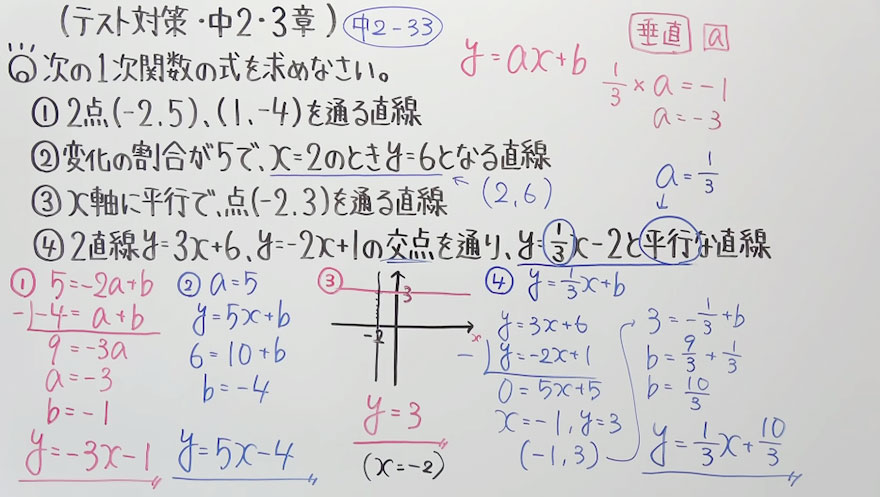 (テスト対策・中2・3章) 中2-33
次の1次関数の式を求めなさい。
①2点(-2.5)、(1.-4)を通る直線
②変化の割合が5で、x=2のときy=6となる直線
(2,6)
③x軸に平行で、点(-2.3)を通る直線
④2直線y=3x+6、y=-2x+1の交点を通り、y=1/3x-2と平行な直線
y=ax+b
垂直 a
1/3×a=-1
a=-3
a=1/3
↓
① 5=-2a+b
-) -4=a+b
9=-3a
a=-3
b=-1
y=-3x-1
② a=5
y=5x+b
6=10+b
b=-4
y=5x-4
③
3
-2
x
y=3
(x=-2)
④ y=1/3x+b
y=3x+6
-) y=-2x+1
0=5x+5
x=-1,y=3
(-1,3)
3=-1/3+b
b=9/3+1/3
b=10/3
y=1/3x+10/3